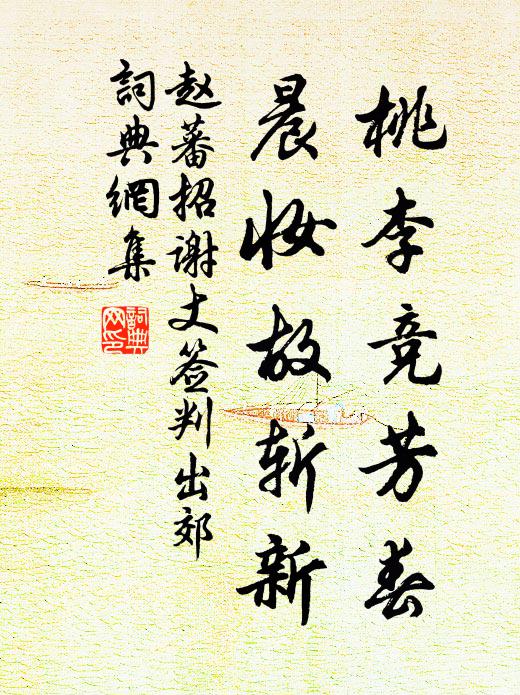 桃李竞芳春
晨妆故斩新
赵蕃招谢丈签判出郊
詞典網集
詞典
网印